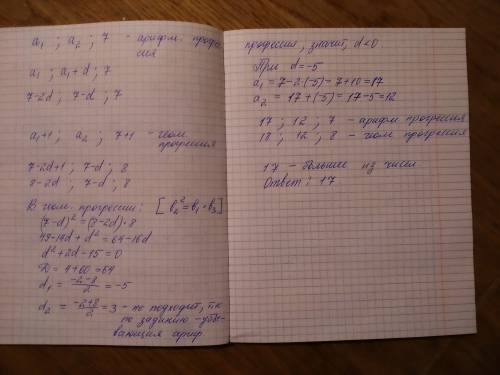 a₁ ; a₂ ; 7 - арифм. прогрес
сия
a₁ ; a₁+d ; 7
7-2d ; 7-d ; 7
a₁+1 ; a₂ ; 7+1 - геом.
прогрессия
7-2d+1 ; 7-d ; 8
8-2d ; 7-d ; 8
В геом. прогрессии: [b₂²=b₁·b₃]
(7-d)²=(8-2d)·8
49-14d+d²=64-16d
d²+2d-15=0
D=4+60=64
d₁=(-2-8)/2=-5
d₂=(-2+8)/2=3 - не подходит, т.к.
по заданию - убы-
вающая ариф.
прогрессия, значит, d<0.
При d=-5
a₁=7-2·(-5)=7+10=17
a₂=17+(-5)=17-5=12
17 ; 12 ; 7 - арифм прогрессия
18 ; 12 ; 8 - геом прогрессия
17 - большее из чисел
Ответ: 17